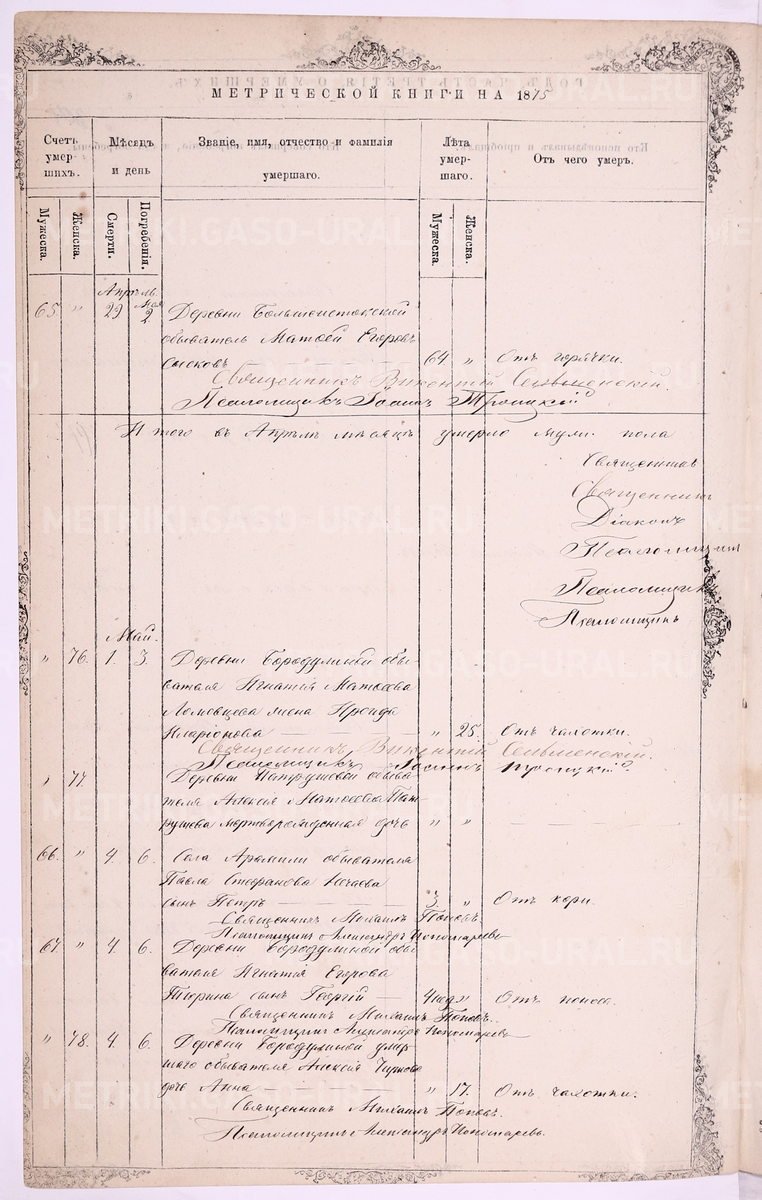 МЕТРИЧЕСКОЙ КНИГИ НА 1875
Счетъ умер- шихъ.
Мѣсяцъ и день
Званіе, имя, отчество и фамилія умершаго.
Лѣта умер- шаго.
Отъ чего умеръ.
Мужеска.
Женска.
Смерти.
Погребенія.
Мужеска.
Женска.
Апрѣль. Мая
65 " 29 2 Деревни Большеистокской
обыватель Матвей Егоровъ
64 " Отъ горячки.
Священникъ Викентій
Псаломщикъ Іоаннъ Троицкій
Итого въ Апрѣлѣ мѣсяцѣ умерло муж. пола
Священникъ
Священникъ
Діаконъ
Псаломщикъ
Псаломщикъ
Псаломщикъ
Май.
" 76. 1. 3. Деревни Бородулиной обы-
вателя Игнатія Матвеева
жена Ираида
Иларіонова " 25. Отъ чахотки.
Священникъ Викентій
Псаломщикъ Іоаннъ Троицкій
" 77. Деревни Патрушевой обыва-
теля Алексія Матвеева Пат-
рушева мертворожденная дочь " "
66. " 4. 6. Села Арамили обывателя
Павла Стефанова Нечаева
сынъ Петръ 3. " Отъ кори.
Священникъ Михаилъ Поповъ.
Псаломщикъ Александръ Пономаревъ
67. " 4. 6. Деревни Бородулиной обы-
вателя Игнатія Егорова
Тюрина сынъ Георгій 4 нед. " Отъ поноса.
Священникъ Михаилъ Поповъ.
Псаломщикъ Александръ Пономаревъ
" 78. 4. 6. Деревни Бородулиной умер-
шаго обывателя Алексія
дочь Анна " 17. Отъ чахотки.
Священникъ Михаилъ Поповъ.
Псаломщикъ Александръ Пономаревъ.
METRIKI.GASO-URAL.RU